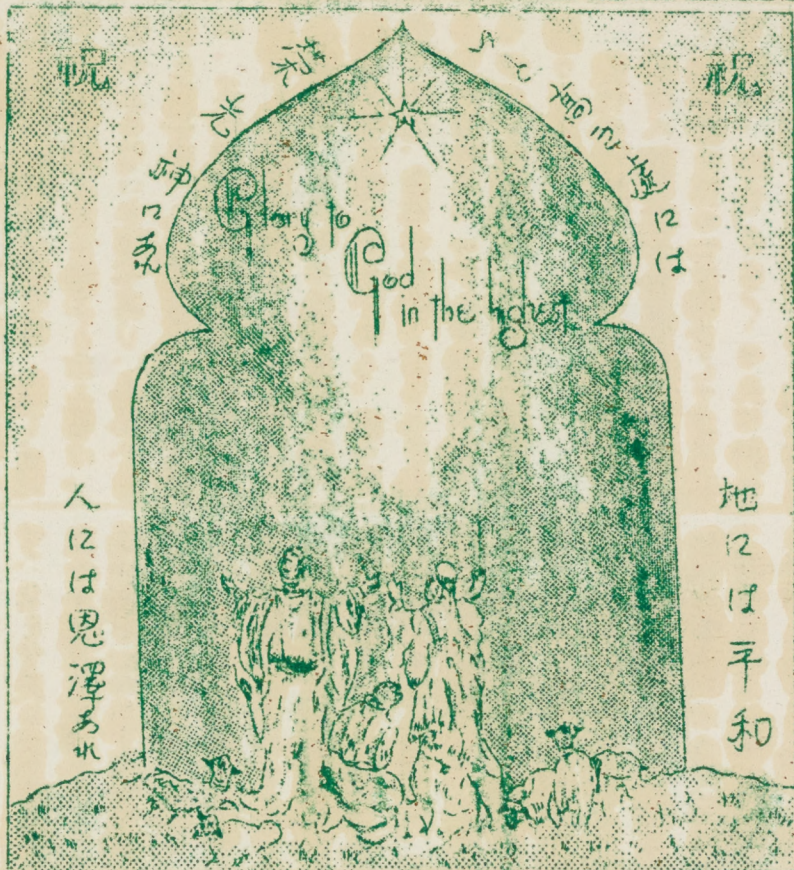 祝
祝
いと高き處には
栄光神にあれ
Glory to
God
in the highest
地には平和
人には恩澤あれ